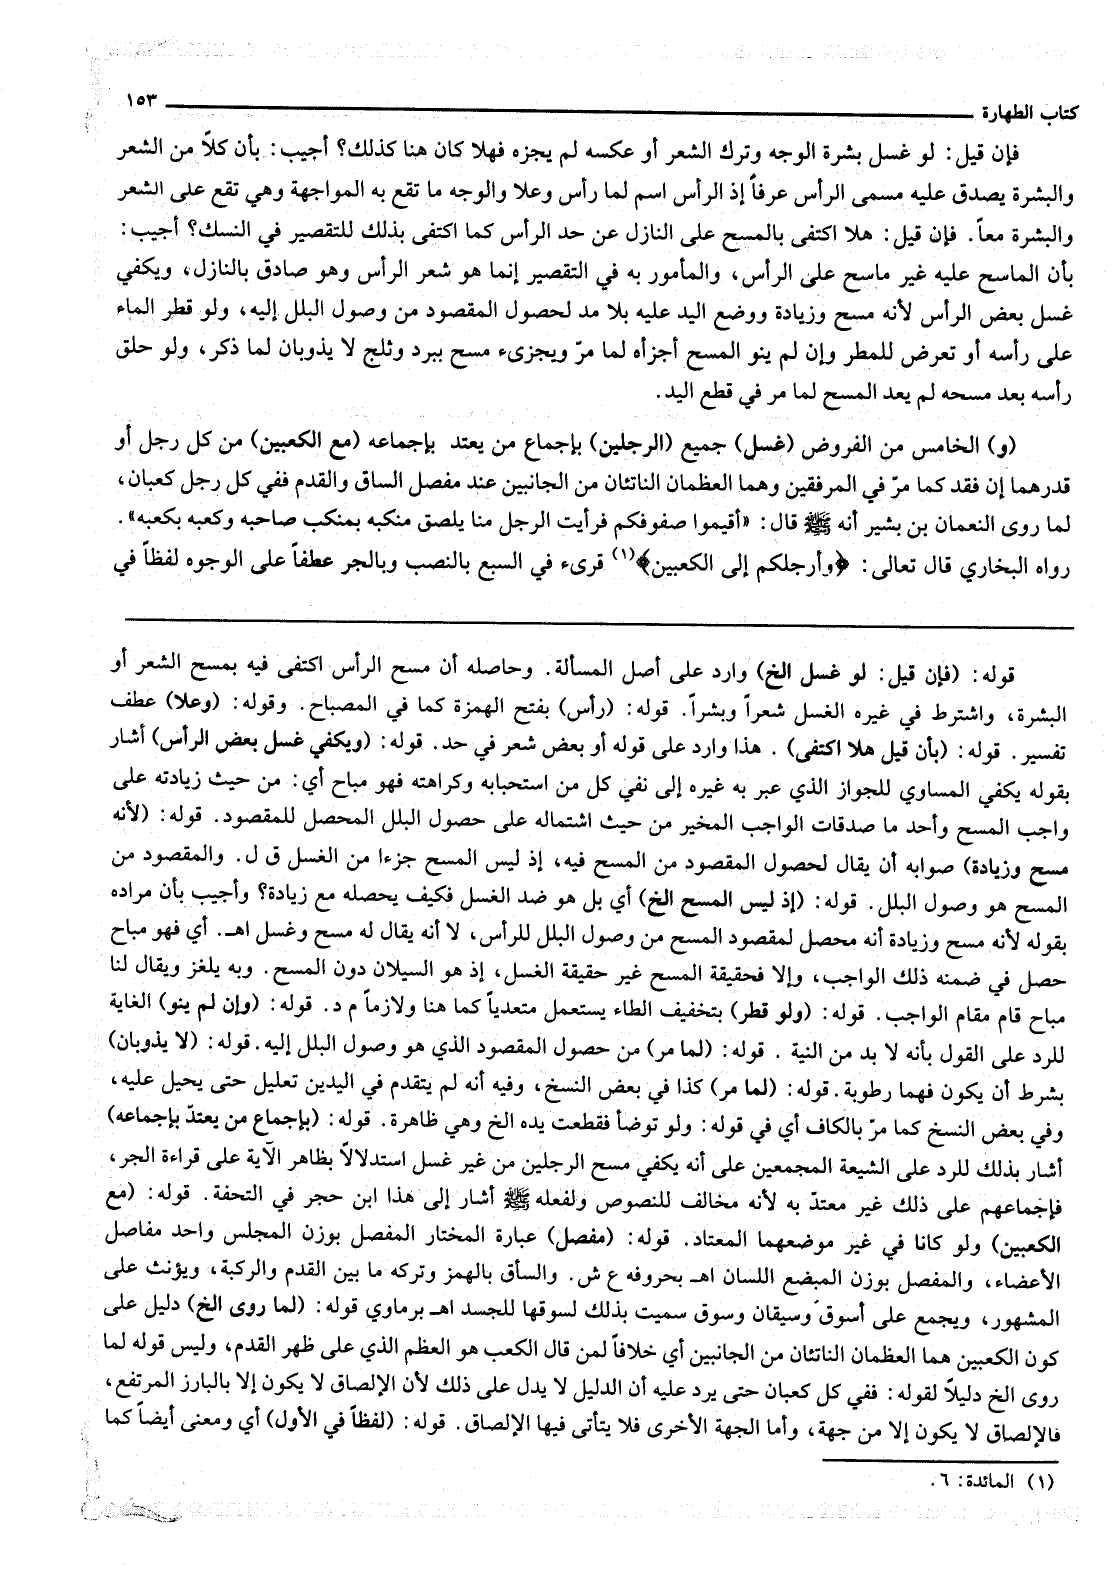 كتاب الطهارة ١٥٣
فإن قيل: لو غسل بشرة الوجه وترك الشعر أو عكسه لم يجزه فهلا كان هنا كذلك؟ أجيب: بأن كلاً من الشعر
والبشرة يصدق عليه مسمى الرأس عرفاً إذ الرأس اسم لما رأس وعلا والوجه ما تقع به المواجهة وهي تقع على الشعر
والبشرة معاً. فإن قيل: هلا اكتفى بالمسح على النازل عن حد الرأس كما اكتفى بذلك للتقصير في النسك؟ أجيب:
بأن الماسح عليه غير ماسح على الرأس، والمأمور به في التقصير إنما هو شعر الرأس وهو صادق بالنازل، ويكفي
غسل بعض الرأس لأنه مسح وزيادة ووضع اليد عليه بلا مد لحصول المقصود من وصول البلل إليه، ولو قطر الماء
على رأسه أو تعرض للمطر وإن لم ينو المسح أجزأه لما مرّ ويجزىء مسح ببرد وثلج لا يذوبان لما ذكر، ولو حلق
رأسه بعد مسحه لم يعد المسح لما مر في قطع اليد.
(و) الخامس من الفروض (غسل) جميع (الرجلين) بإجماع من يعتد بإجماعه (مع الكعبين) من كل رجل أو
قدرهما إن فقد كما مرّ في المرفقين وهما العظمان الناتئان من الجانبين عند مفصل الساق والقدم ففي كل رجل كعبان،
لما روى النعمان بن بشير أنه ﷺ قال: «أقيموا صفوفكم فرأيت الرجل منا يلصق منكبه بمنكب صاحبه وكعبه بكعبه».
رواه البخاري قال تعالى: ﴿وأرجلكم إلى الكعبين﴾(١) قرىء في السبع بالنصب وبالجر عطفاً على الوجوه لفظاً في
قوله: (فإن قيل: لو غسل الخ) وارد على أصل المسألة. وحاصله أن مسح الرأس اكتفى فيه بمسح الشعر أو
البشرة، واشترط في غيره الغسل شعراً وبشراً. قوله: (رأس) بفتح الهمزة كما في المصباح. وقوله: (وعلا) عطف
تفسير. قوله: (بأن قيل هلا اكتفى). هذا وارد على قوله أو بعض شعر في حد. قوله: (ويكفي غسل بعض الرأس) أشار
بقوله يكفي المساوي للجواز الذي عبر به غيره إلى نفي كل من استحبابه وكراهته فهو مباح أي: من حيث زيادته على
واجب المسح وأحد ما صدقات الواجب المخير من حيث اشتماله على حصول البلل المحصل للمقصود. قوله: (لأنه
مسح وزيادة) صوابه أن يقال لحصول المقصود من المسح فيه، إذ ليس المسح جزءا من الغسل ق ل. والمقصود من
المسح هو وصول البلل. قوله: (إذ ليس المسح الخ) أي بل هو ضد الغسل فكيف يحصله مع زيادة؟ وأجيب بأن مراده
بقوله لأنه مسح وزيادة أنه محصل لمقصود المسح من وصول البلل للرأس، لا أنه يقال له مسح وغسل اهـ. أي فهو مباح
حصل في ضمنه ذلك الواجب، وإلا فحقيقة المسح غير حقيقة الغسل، إذ هو السيلان دون المسح. وبه يلغز ويقال لنا
مباح قام مقام الواجب. قوله: (ولو قطر) بتخفيف الطاء يستعمل متعدياً كما هنا ولازماً م د. قوله: (وإن لم ينو) الغاية
للرد على القول بأنه لا بد من النية . قوله: (لما مر) من حصول المقصود الذي هو وصول البلل إليه. قوله: (لا يذوبان)
بشرط أن يكون فهما رطوبة. قوله: (لما مر) كذا في بعض النسخ، وفيه أنه لم يتقدم في اليدين تعليل حتى يحيل عليه،
وفي بعض النسخ كما مرّ بالكاف أي في قوله: ولو توضأ فقطعت يده الخ وهي ظاهرة. قوله: (بإجماع من يعتدّ بإجماعه)
أشار بذلك للرد على الشيعة المجمعين على أنه يكفي مسح الرجلين من غير غسل استدلالاً بظاهر الآية على قراءة الجر،
فإجماعهم على ذلك غير معتدّ به لأنه مخالف للنصوص ولفعله ﷺ أشار إلى هذا ابن حجر في التحفة. قوله: (مع
الكعبين) ولو كانا في غير موضعهما المعتاد. قوله: (مفصل) عبارة المختار المفصل بوزن المجلس واحد مفاصل
الأعضاء، والمفصل بوزن المبضع اللسان اهـ بحروفه ع ش. والسأق بالهمز وتركه ما بين القدم والركبة، ويؤنث على
المشهور، ويجمع على أسوق وسيقان وسوق سميت بذلك لسوقها للجسد اهـ برماوي قوله: (لما روى الخ) دليل على
كون الكعبين هما العظمان الناتئان من الجانبين أي خلافاً لمن قال الكعب هو العظم الذي على ظهر القدم، وليس قوله لما
روى الخ دليلاً لقوله: ففي كل كعبان حتى يرد عليه أن الدليل لا يدل على ذلك لأن الإلصاق لا يكون إلا بالبارز المرتفع،
فالإلصاق لا يكون إلا من جهة، وأما الجهة الأخرى فلا يتأتى فيها الإلصاق. قوله: (لفظاً في الأول) أي ومعنى أيضاً كما
(١) المائدة: ٦.